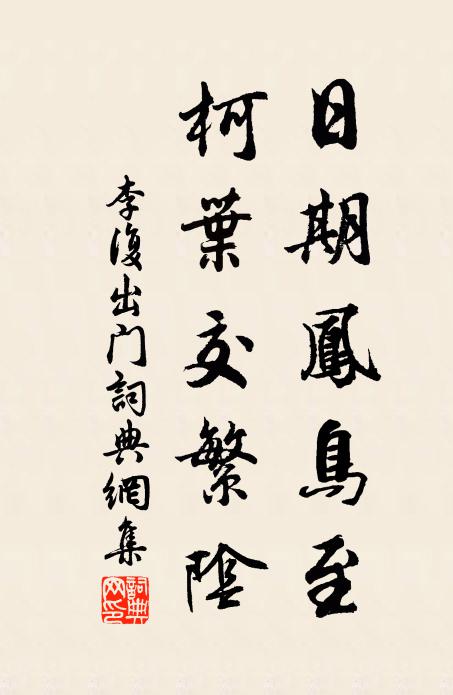 日期鳳鳥至
柯葉交繁陰
李復出门詞典網集
詞典网印